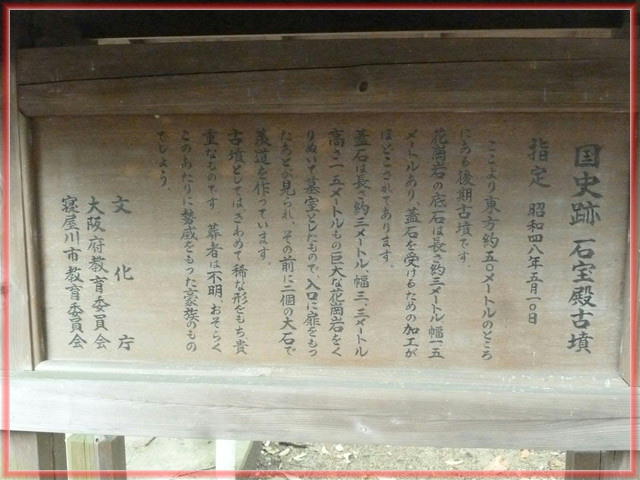 国史跡 石宝殿古墳
指定 昭和四八年五月一〇日
ここより東方約五〇メートルのところ
にある後期古墳です。
花崗岩の底石は長さ約三メートル 幅一.五
メートルあり、蓋石を受けるための加工が
ほどこされてあります。
蓋石は長さ約三メートル、幅三.三メートル
高さ一.五メートルもの巨大な花崗岩をく
りぬいて墓室としたもので、入口に扉をもっ
たあとが見られ、その前に二個の大石で
羨道を作っています。
古墳としてはきわめて稀な形をもち貴
重なものです 葬者は不明、おそらく
このあたりに勢威をもった豪族のもの
でしょう。
文化庁
大阪府教育委員会
寝屋川市教育委員会